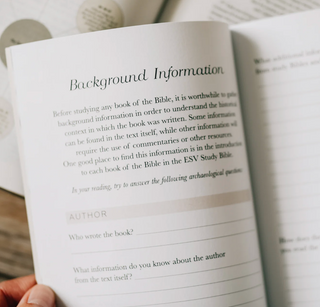 Background Information
Before studying any book of the Bible, it is worthwhile to
background information in order to understand the
context in which the book was written. Some information
can be found in the text itself, while other information
require the use of commentaries or other resources.
One good place to find this information is in the introduction
to each book of the Bible in the ESV Study Bible.
In your reading, try to answer the following archaeological
AUTHOR
Who wrote the book?
What information do you know about the author
from the text itself?